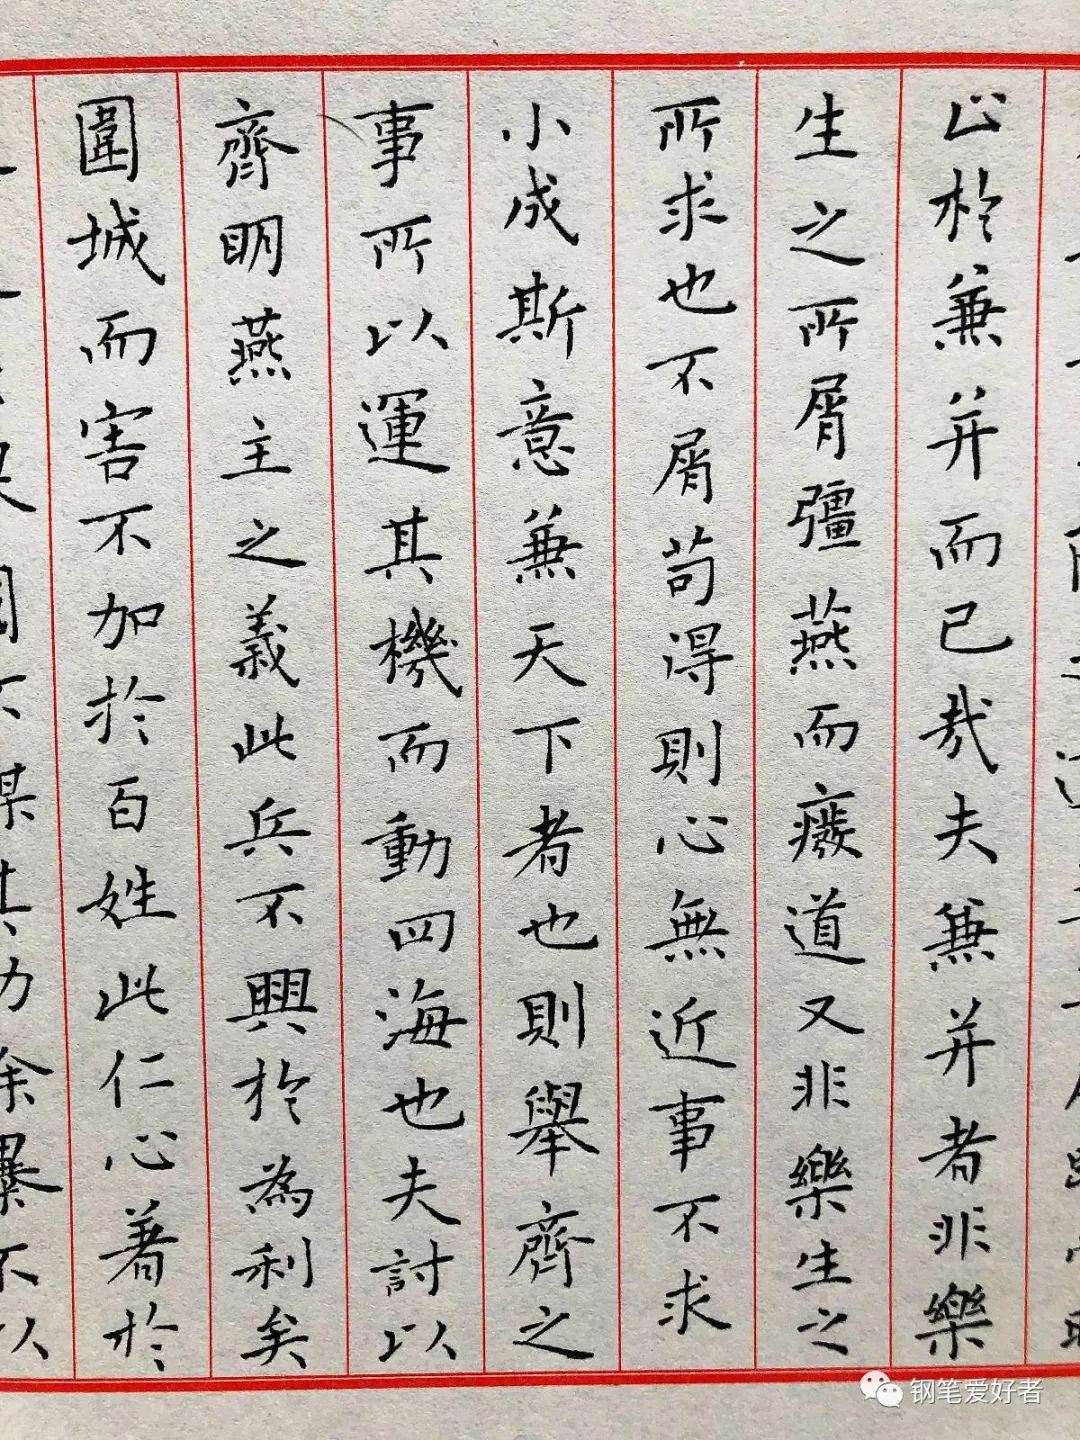 止於兼并而已哉夫兼并者非樂
生之所屑彊燕而廢道又非樂生之
所求也不屑苟得則心無近事不求
小成斯意兼天下者也則舉齊之
事所以運其機而動四海也夫討以
齊明燕主之義此兵不興於為利矣
圍城而害不加於百姓此仁心著於
國不謀其功除暴不以
钢笔爱好者